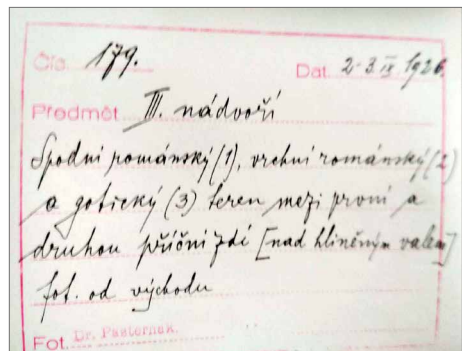 Čís. 179. Dat. 2-3 IX. 1926
Předmět III. nádvoří
Spodní románský (1), vrchní románský (2)
a gotický (3) teren mezi první a
druhou příční zdí [nad hliněným valem]
fot. od východu
Fot. Dr. Pasternak.